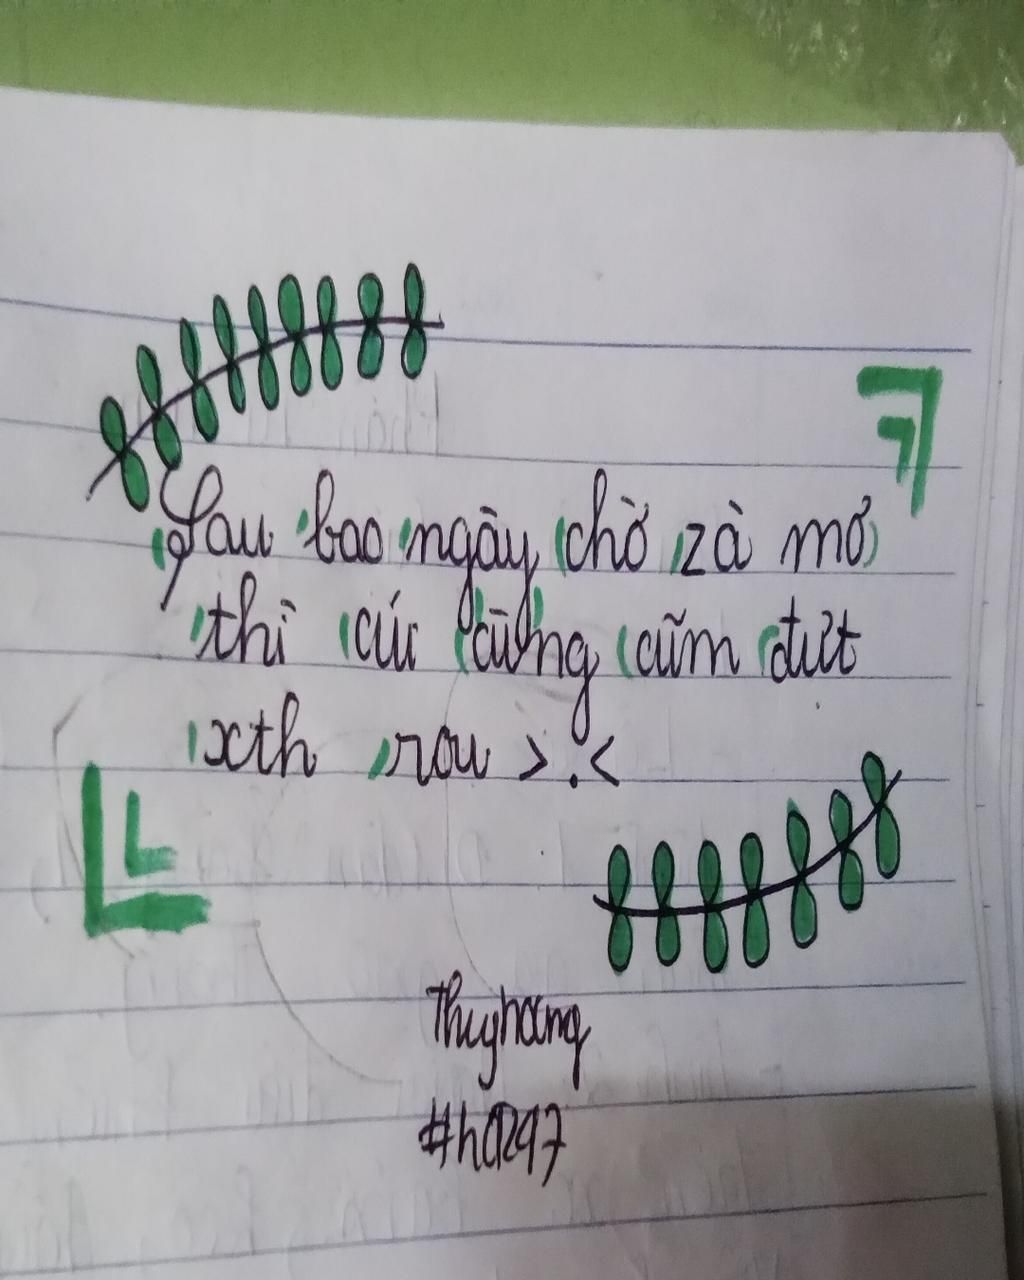 Sau bao ngày chờ zà mơ
thì cúc cũng cũm đượt
xth rou >.<
Thuyhoang